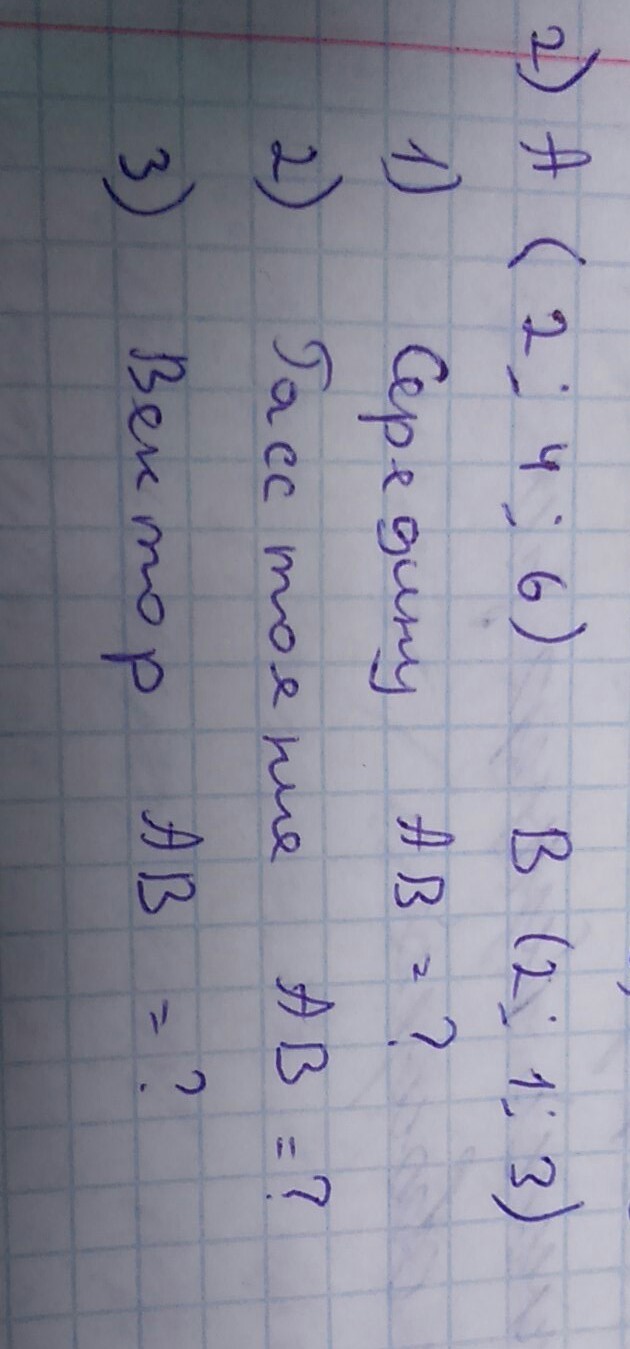 2) A (2; 4; 6) B (2; 1; 3)
1) Середину AB = ?
2) Расстояние AB = ?
3) Вектор AB = ?